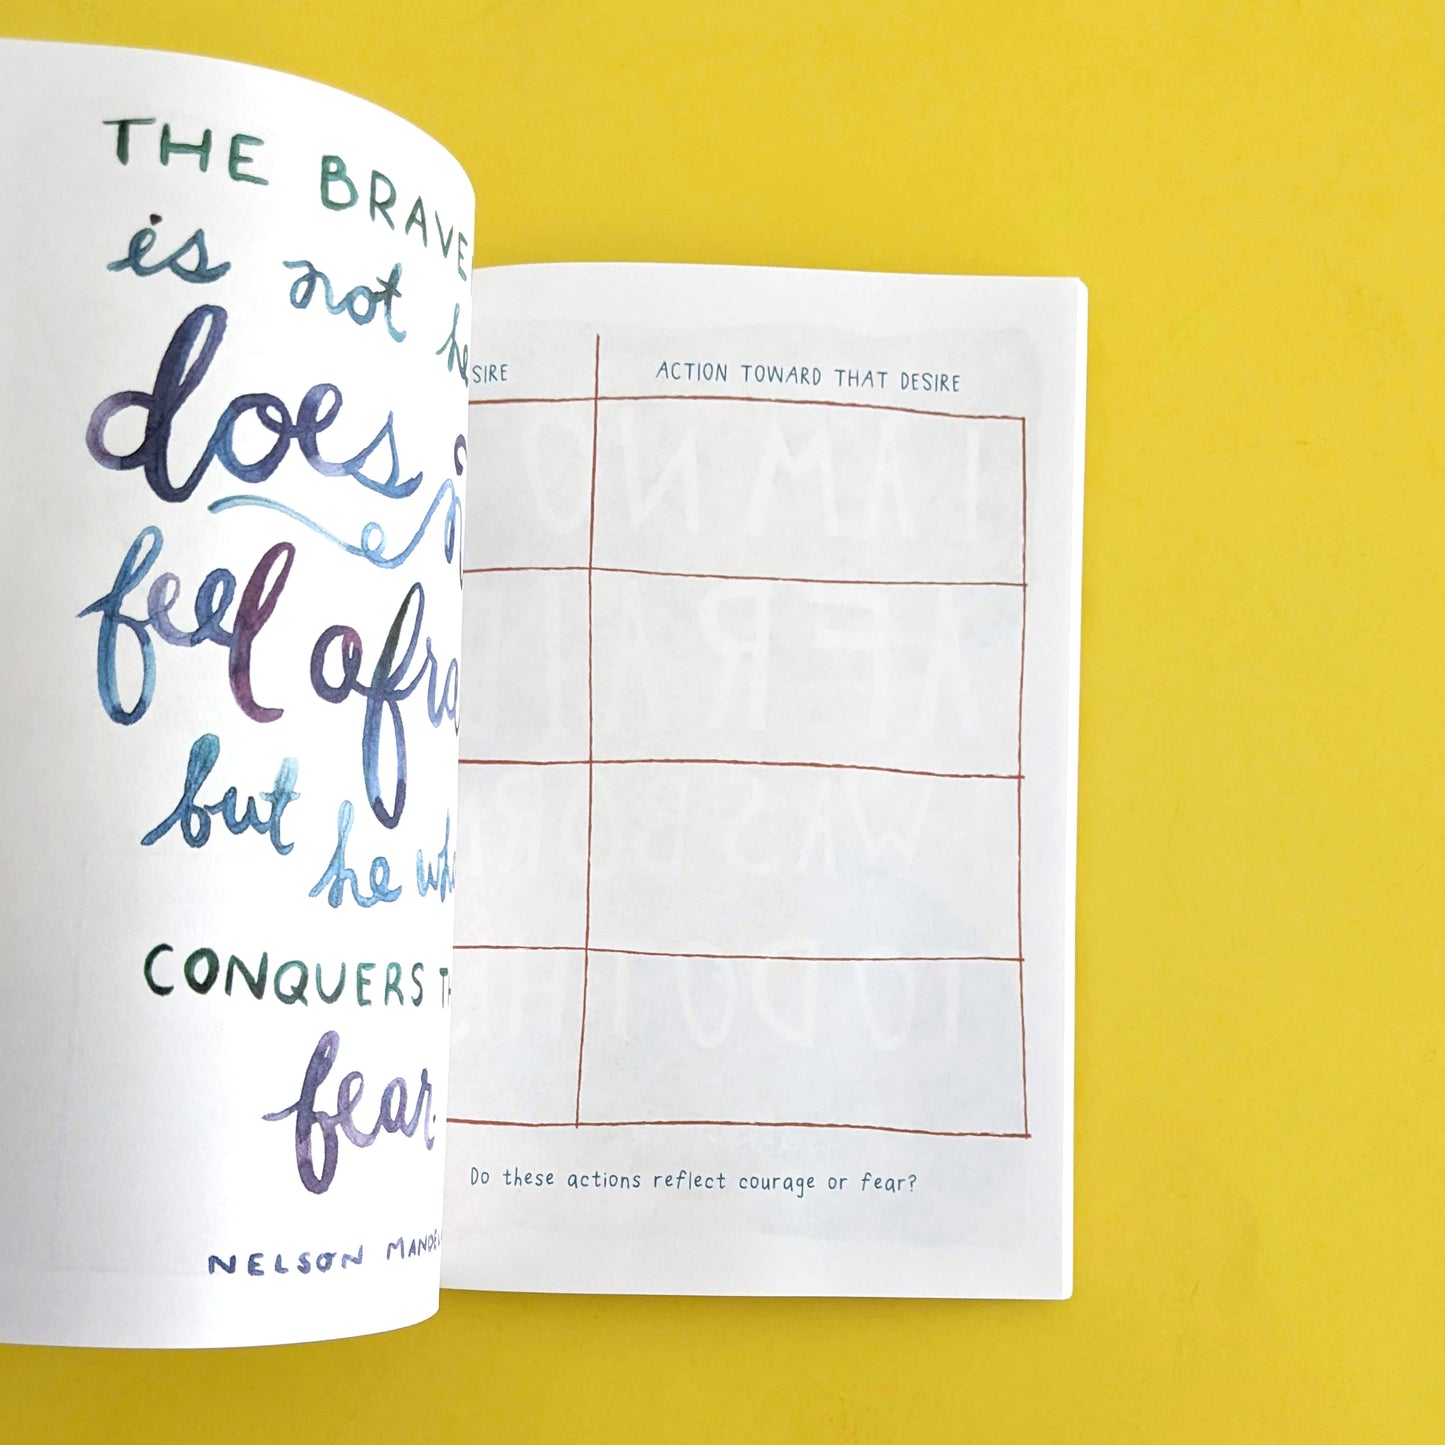 THE BRAVE
is not he
does
feel afra
but he wh
CONQUERS TH
fear.
NELSON MANDEL
SIRE
ACTION TOWARD THAT DESIRE
Do these actions reflect courage or fear?